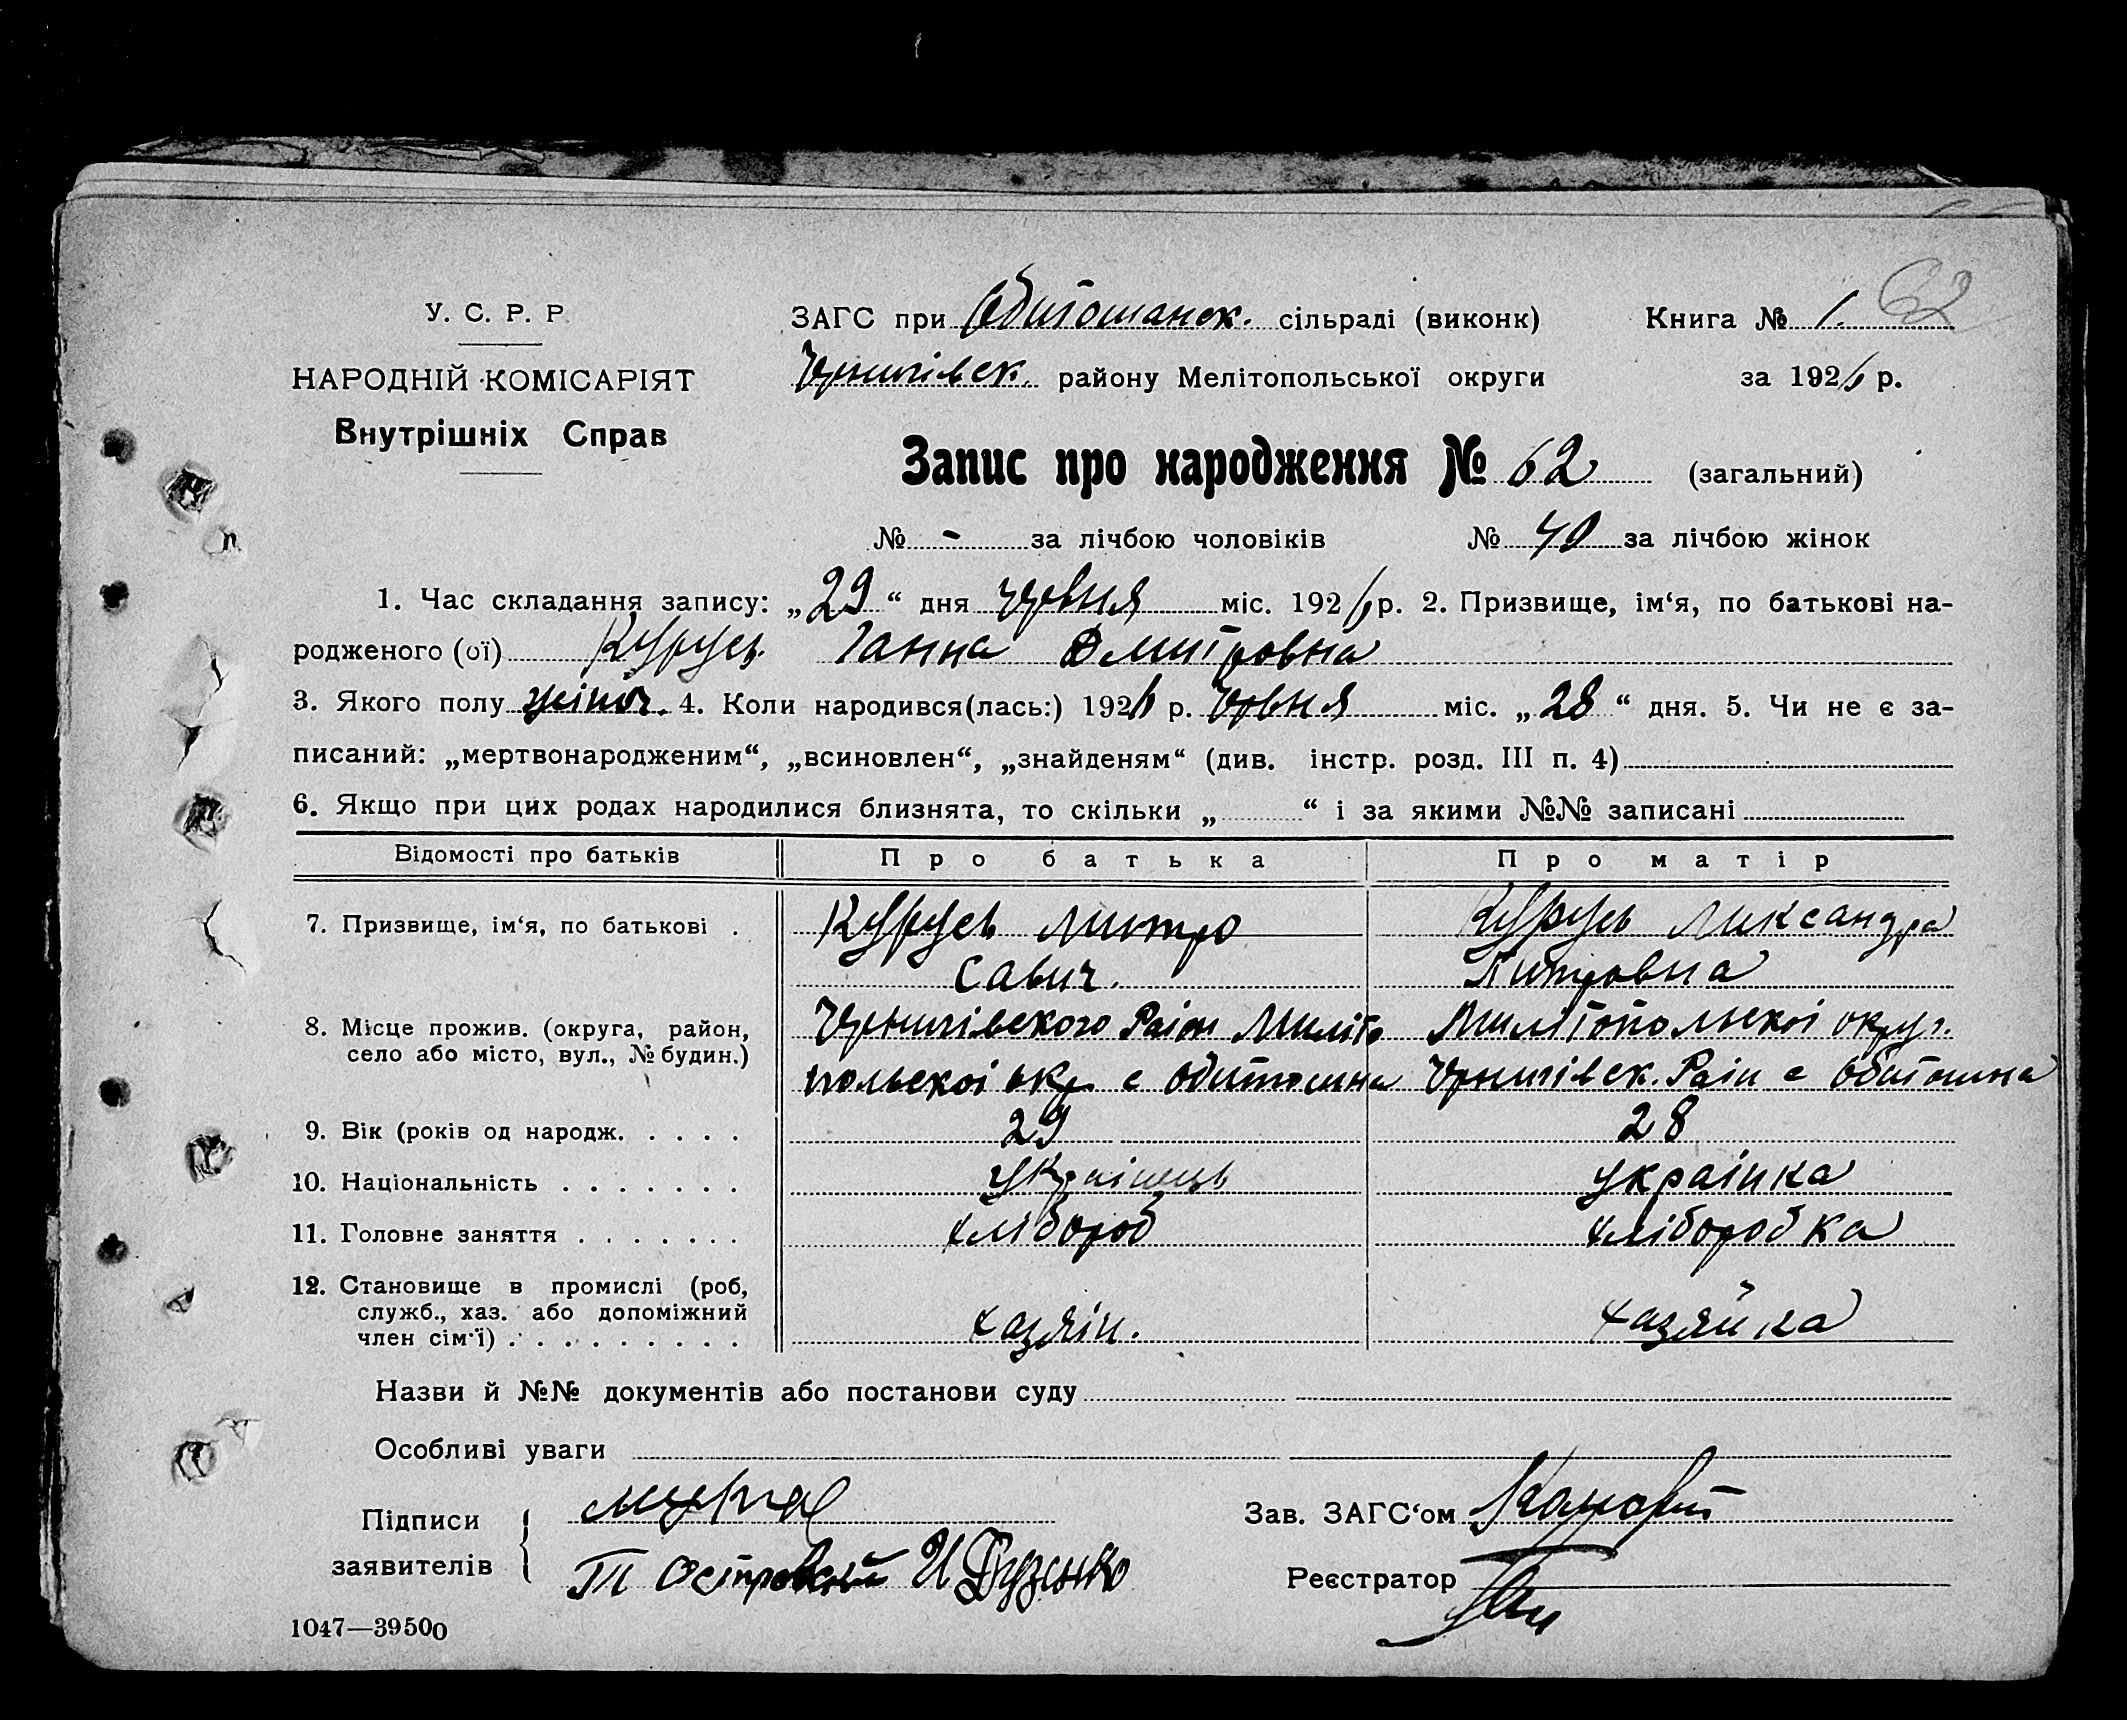 У. С. Р. Р.
НАРОДНІЙ КОМІСАРІЯТ
Внутрішніх Справ
ЗАГС при Обитошанск. сільраді (виконк)
Книга № 1. 62
Чернигівск. району Мелітопольської округи
за 1926 р.
Запис про народження № 62 (загальний)
№ - за лічбою чоловіків № 40 за лічбою жінок
1. Час складання запису: „29“ дня червня міс. 1926 р. 2. Призвище, ім‘я, по батькові на-
родженого (ої) Курусь Ганна Дмитровна
3. Якого полу жіноч. 4. Коли народився(лась:) 1926 р. Червня міс. „28“ дня. 5. Чи не є за-
писаний: „мертвонародженим“, „всиновлен“, „знайденям“ (див. інстр. розд. III п. 4)
6. Якщо при цих родах народилися близнята, то скільки „ “ і за якими №№ записані
Відомості про батьків Про батька Про матір
7. Призвище, ім‘я, по батькові . Курусь Митро Курусь Ликсандра
Савич. Питровна
8. Місце прожив. (округа, район,
село або місто, вул., № будин.)
Чернигівского Раіон Миліто
польскоі окр. с Обитошна
Милітопольскоі округ.
Чернигівск. Раін с Обитошна
9. Вік (років од народж. . . . . 29 28
10. Національність . . . . . . . Українець украінка
11. Головне заняття . . . . . . . хлібороб хліборобка
12. Становище в промислі (роб,
служб., хаз. або допоміжний
член сім‘ї) . . . . . . . . . хазяін. хазяйка
Назви й №№ документів або постанови суду
Особливі уваги
Підписи
заявителів
Т Островский И Дузенко
Зав. ЗАГС‘ом
Реєстратор
1047—39500